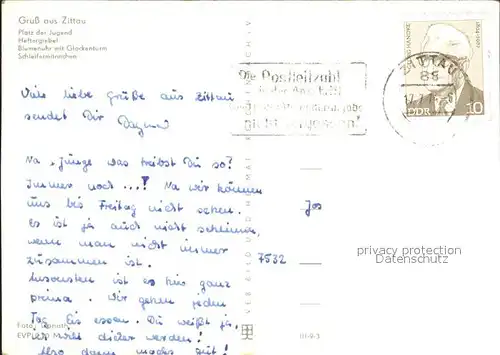 Gruß aus Zittau
Platz der Jugend
Heftergiebel
Blumenuhr mit Glockenturm
Schleifermännchen
Viele liebe Grüße aus Zittau
sendet Dir Dagmar
Na, Junge was treibst Du so?
Immer noch ...? Na wir können
uns bis Freitag nicht sehen.
Es ist ja auch nicht schlimm,
wenn man nicht immer
zusammen ist.
Ansonsten ist es hier ganz
prima. Wir gehen jeden
Tag Eis essen. Du weißt ja,
macht dicker werden!
Also dann machs gut!
Foto:
Die Postleitzahl
nicht vergessen!
ZITTAU
88
DDR 10
Jos
7532
privacy protection
AnsichtskartenDatenschutz
III-9-3